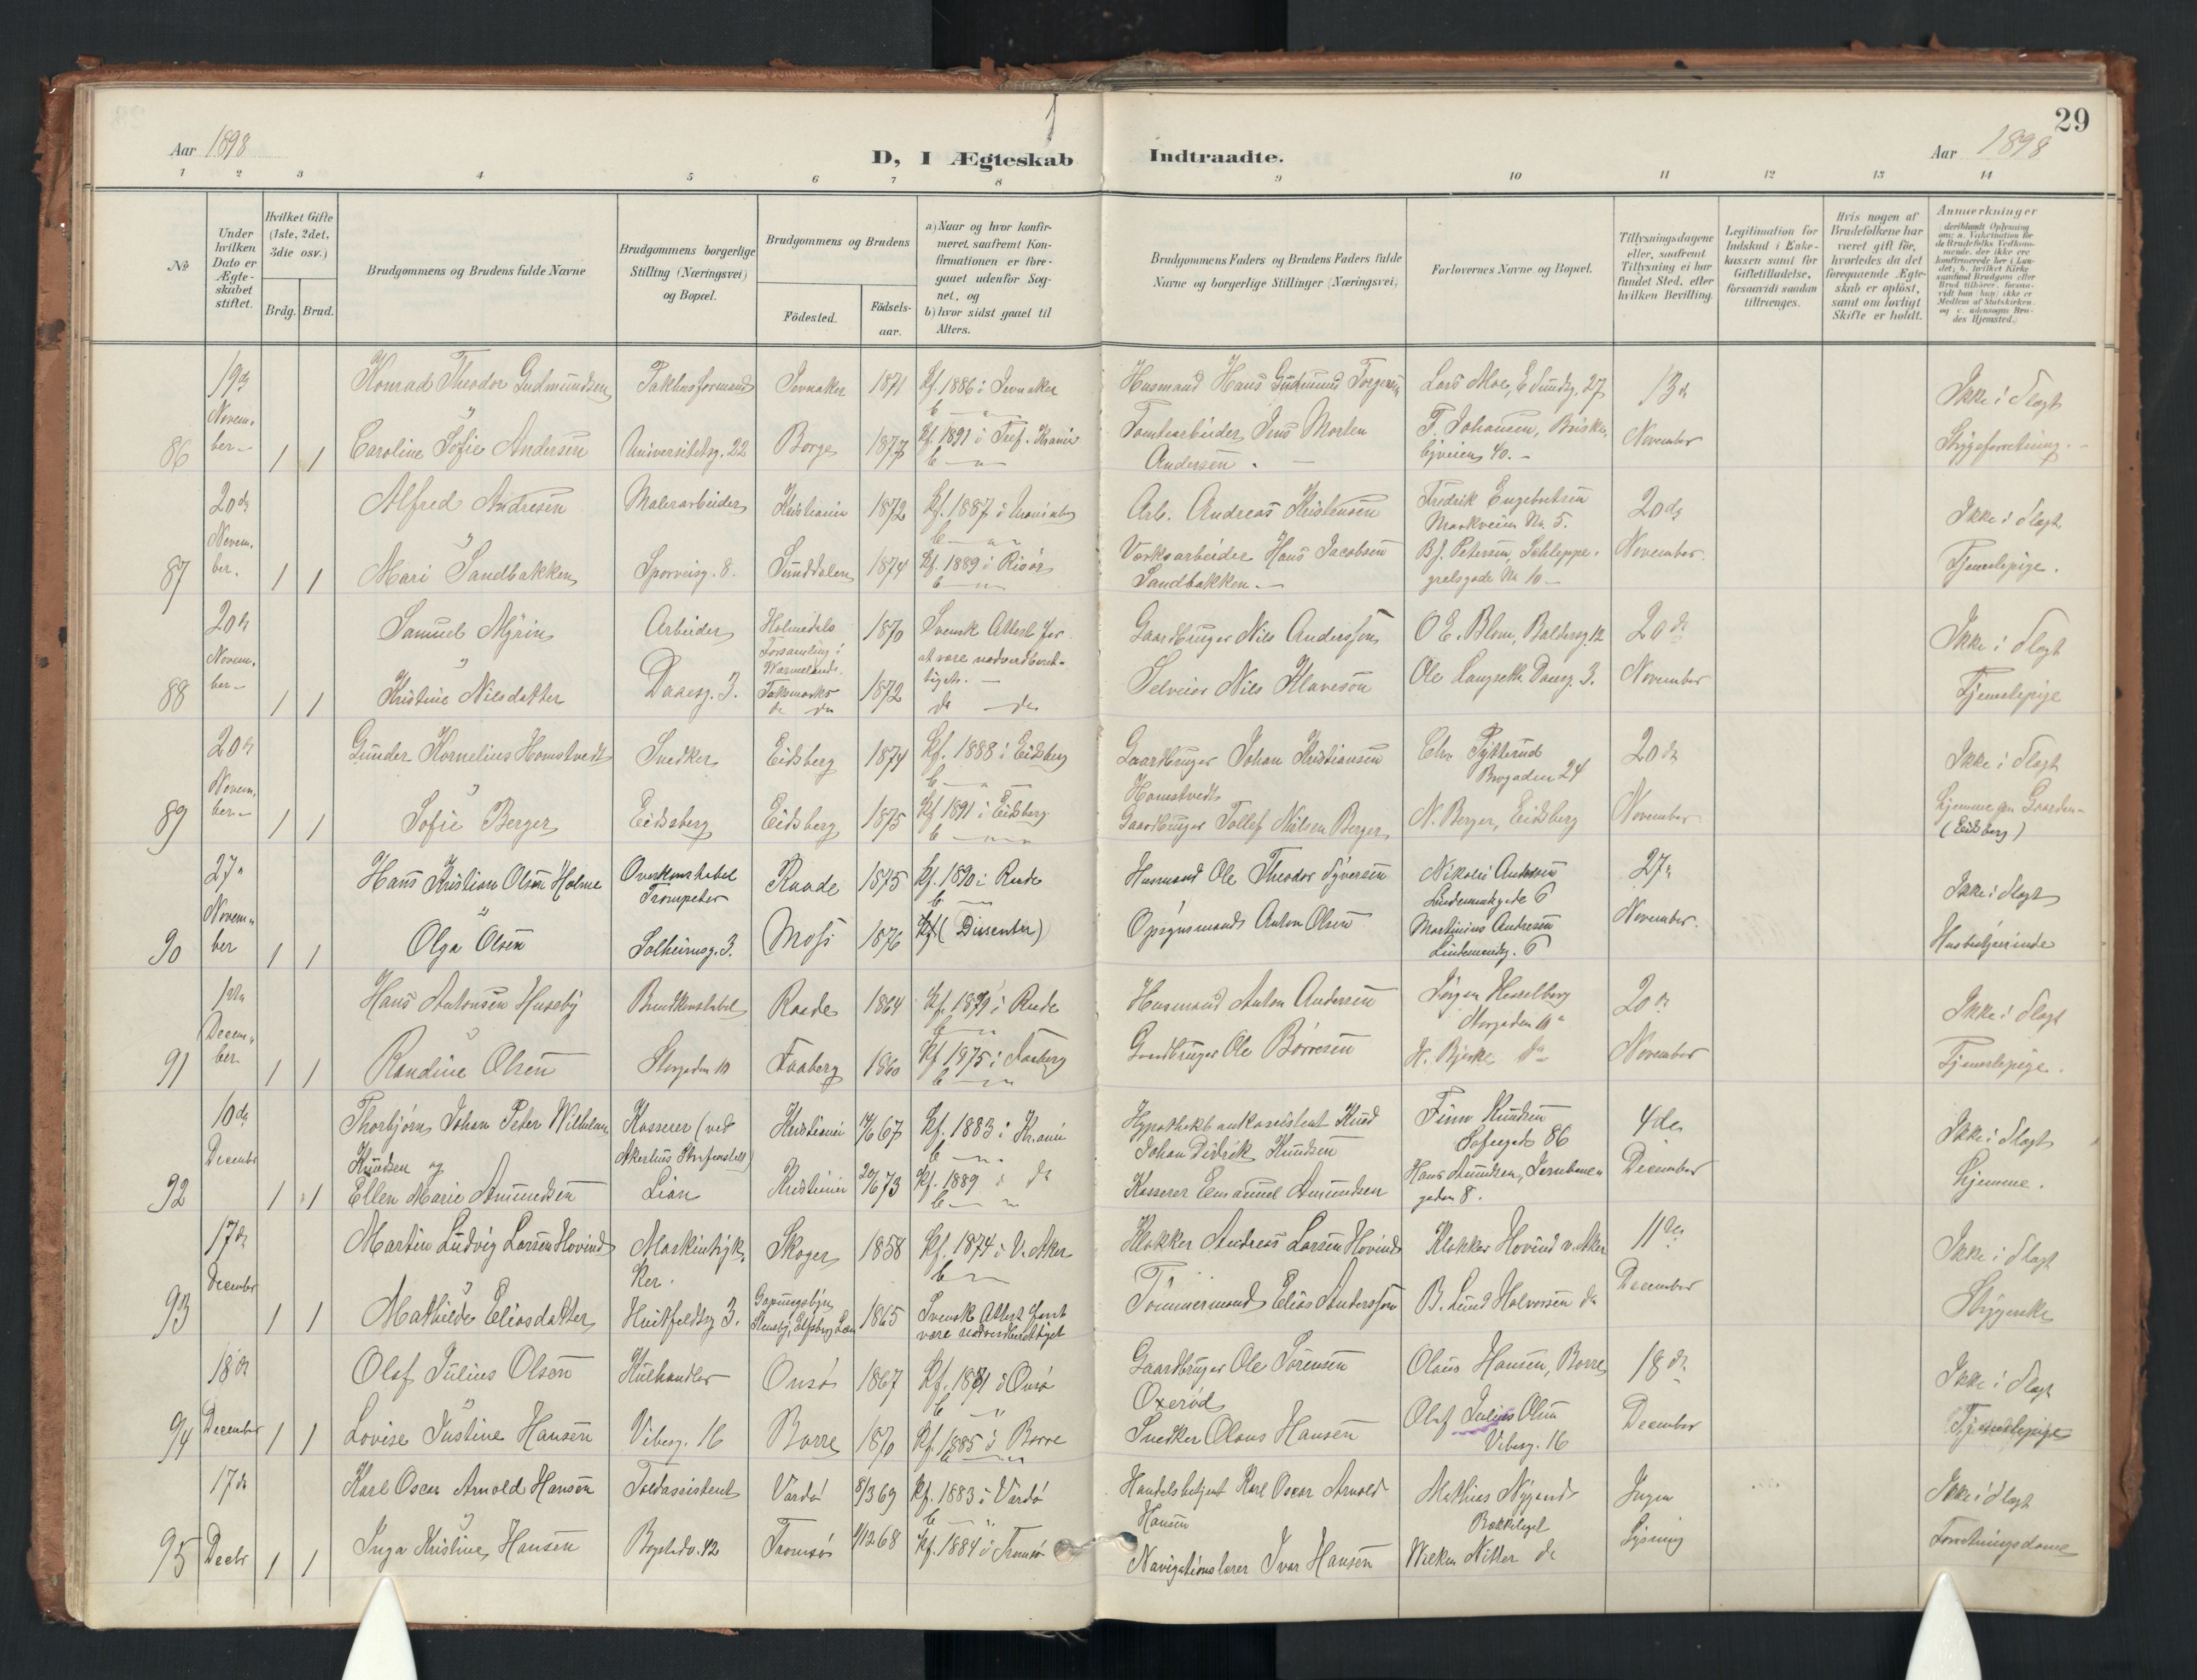 29
Aar 1898
D, I Ægteskab Indtraadte.
Aar 1898
1 2 3 4 5 6 7 8 9 10 11 12 13 14
No
Under hvilken Dato er Ægteskabet stiftet.
Hvilket Gifte (1ste, 2det, 3die osv.)
Brdg. Brud.
Brudgommens og Brudens fulde Navne
Brudgommens borgerlige Stilling (Næringsvei) og Bopæl.
Brudgommens og Brudens
Födested.
Födselsaar.
a) Naar og hvor konfirmeret, saafremt Konfirmationen er foregaaet udenfor Sognet, og
b) hvor sidst gaaet til Alters.
Brudgommens Faders og Brudens Faders fulde Navne og borgerlige Stillinger (Næringsvei)
Forlovernes Navne og Bopæl.
Tillysningsdagene eller, saafremt Tillysning ei har fundet Sted, efter hvilken Bevilling.
Legitimation for Indskud i Enkekassen samt for Giftetilladelse, forsaavidt saadan tiltrænges.
Hvis nogen af Brudefolkene har været gift för, hvorledes da det foregaaende Ægteskab er oplöst, samt om lovligt Skifte er holdt.
Anmærkninger
86 19de November 1 1
Konrad Theodor Gudmundsen Taktusformand Jevnaker 1871 Kf. 1886 i Jevnaker
Husmand Hans Gudmund Torgersen Lars Moe, E. Sundtsg. 27 13de Ikke i Slægt
Caroline Sofie Andersen Universitetsg. 22 Borge 1877 Kf. 1891 i Tref. Krania
Tomtearbeider Jens Morten Andersen. T. Johansen, Briskebyveien 40. November Strygeforretning.
87 20de November. 1 1
Alfred Andresen Malerarbeider Kristiania 1872 Kf. 1887 i
Arb. Andreas Kristensen Fredrik Engebretsen Markveien No. 5. 20de Ikke i Slægt
Mari Sandbakken Sporveisg. 8. Sunddalen 1874 Kf. 1889 i Risör
Værksarbeider Hans Jacobsen Sandbakken. B.J. Petersen, Schleppegrelsgade No 10 November. Tjenestepige.
88 20de November 1 1
Samuel Myrin Arbeider Holmedals Forsamling i Wærmeland. 1870 Svensk Attest for at være nadverdberettiget.
Gaardbruger Nils Andersson O E. Blom, Baldersg. 12 20de Ikke i Slægt
Kristine Nilsdatter Daaesg. 3. Taksmarks do do 1872 do do
Selveier Nils Klaveson Ole Langseth Daaesg. 3. November Tjenestepige
89 20de November 1 1
Gunder Kornelius Homstvedt Snedker Eidsberg 1874 Kf. 1888 i Eidsberg
Gaardbruger Johan Kristiansen Homstvedt Chr. Brogaden 24 20de Ikke i Slægt
Sofie Berger Eidsberg Eidsberg 1875 Kf 1891 i Eidsberg
Gaardbruger Tollef Nilsen Berger N. Berger, Eidsberg November hjemme paa Gaarden (Eidsberg)
90 27 November 1 1
Hans Kristian Olsen Holme Overkonstabel Trompeter Raade 1875 Kf. 1890 i Raade
Husmand Ole Theodor Syversen Nikolai Andresen 6 27 Ikke i Slægt
Olga Olsen Solheimsg. 3. Moss 1876 Kf. (Dissenter)
Opsynsmand Anton Olsen Martinius Andresen 6 November. Husbestyrerinde
91 December 1 1
Hans Antonsen Huseby Brandkonstabel Raade 1864 Kf. 1879 i Raade
Husmand Anton Andersen Jørgen Hesselberg Storgaden 10 20de Ikke i Slægt
Randine Olsen Storgaden 10 Faaberg 1860 Kf 1875 i Faaberg
Gaardbruger Ole Börresen H. Bjerke do November Tjenestepige.
92 10de December 1 1
Thorbjørn Johan Peter Wilhelm Knudsen og Kasserer (ved Akershus Strafanstalt) Kristiania 14/6 67 Kf. 1883 i Krania
Hypothekbankassistent Knud Johan Didrik Knudsen Finn Knudsen Sofiegade 86 4de Ikke i Slægt
Ellen Marie Amundsen Lian Kristiania 20/6 73 Kf. 1889 i do
Kasserer Emanuel Amundsen Hans Amundsen, Jernbanegaden 8. December Hjemme.
93 17de December 1 1
Martin Ludvig Larsen Hovind Maskintrykker. Skoger 1858 Kf. 1874 i V. Aker
Klokker Andreas Larsen Hovind Klokker Hovind v. Aker 11te Ikke i Slægt
Mathilde Eliasdatter Hvitfeldtsg 3. 1865 Svensk Attest for at være nadverdberettiget
Tømmermand Elias Andersson B. Lund Halvorsen do December Strygerske
94 18de December 1 1
Olaf Julius Olsen Kulhandler Onsø 1867 Kf. 1881 i Onsø
Gaardbruger Ole Sørensen Oxerød Olaus Hansen, Borre 18de Ikke i Slægt
Lovise Justine Hansen Vibesg. 16 Borre 1870 Kf. 1885 i Borre
Snedker Olaus Hansen Olaf Julius Olsen Vibesg. 16 December Tjenestepige
95 17de Decbr 1 1
Karl Oscar Arnold Hansen Toldassistent Vardø 8/3 69 Kf. 1883 i Vardø
Handelsbetjent Karl Oscar Arnold Hansen Mathias Nygaard Bakkehget Ingen Ikke i Slægt
Inga Kristine Hansen Bogstadv. 42 Tromsø 1/12 68 Kf. 1884 i Tromsø
Navigationslærer Ivar Hansen Wilken Nitter do Lysning Forretningsdame